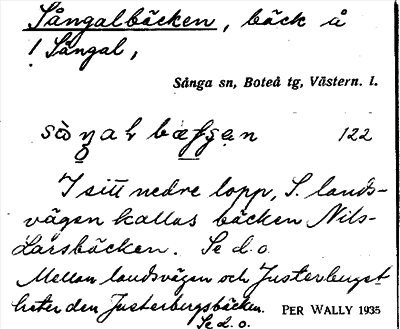 Sångalbäcken, bäck å
! Sångal,
Sånga sn, Boteå tg, Västern. l.
122
I sitt nedre lopp, S. lands-
vägen kallas bäcken Nils-
Larsbäcken. Se d. o.
Mellan landsvägen och Justerberget
heter den Justerbergsbäcken. PER WALLY 1935
Se d. o.